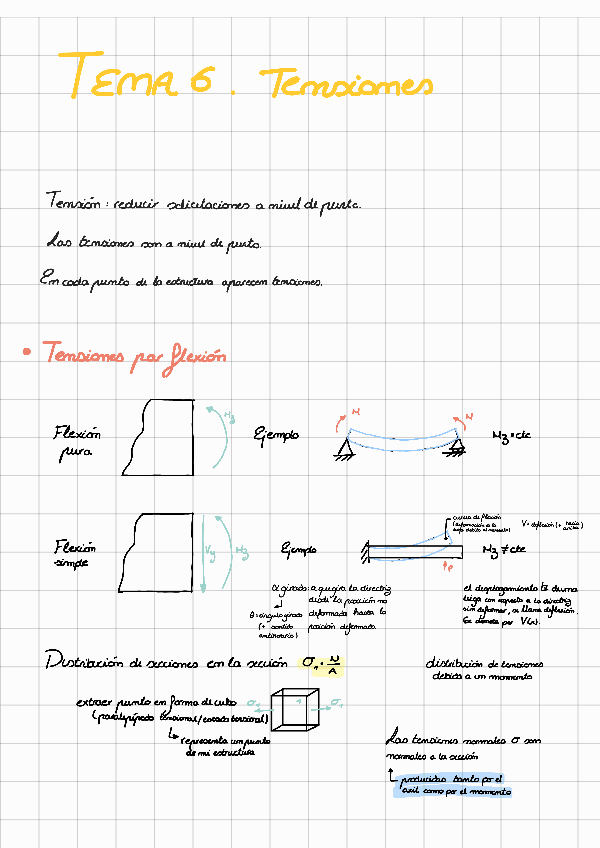 TEMA 6. Tensiones
Tensión: reducir solicitaciones a nivel de punto.
Las tensiones son a nivel de punto.
En cada punto de la estructura aparecen tensiones.
• Tensiones por flexión
Flexión
pura
Mz
Ejemplo
M
M
Mz = cte
Flexión
simple
Vy
Mz
Ejemplo
P
Mz ≠ cte
curva de flexión
(deformación de la
debido al momento)
V = deflexión (+ hacia
arriba)
girado: gira la directriz
desde la posición no
deformada hasta la
posición deformada.
θ = ángulo girado
(+ sentido
antihorario)
el desplazamiento de una
viga con respecto a la directriz
sin deformar, se llama deflexión.
Se denota por V(x).
Distribución de secciones en la sección σ₁ = N/A
distribución de tensiones
debida a un momento
extraer punto en forma de cubo
(paralepípedo tensional/estado tensional)
σ₁
1
σ₁
representa un punto
de mi estructura
Las tensiones normales σ son
normales a la sección
producidas tanto por el
axil como por el momento